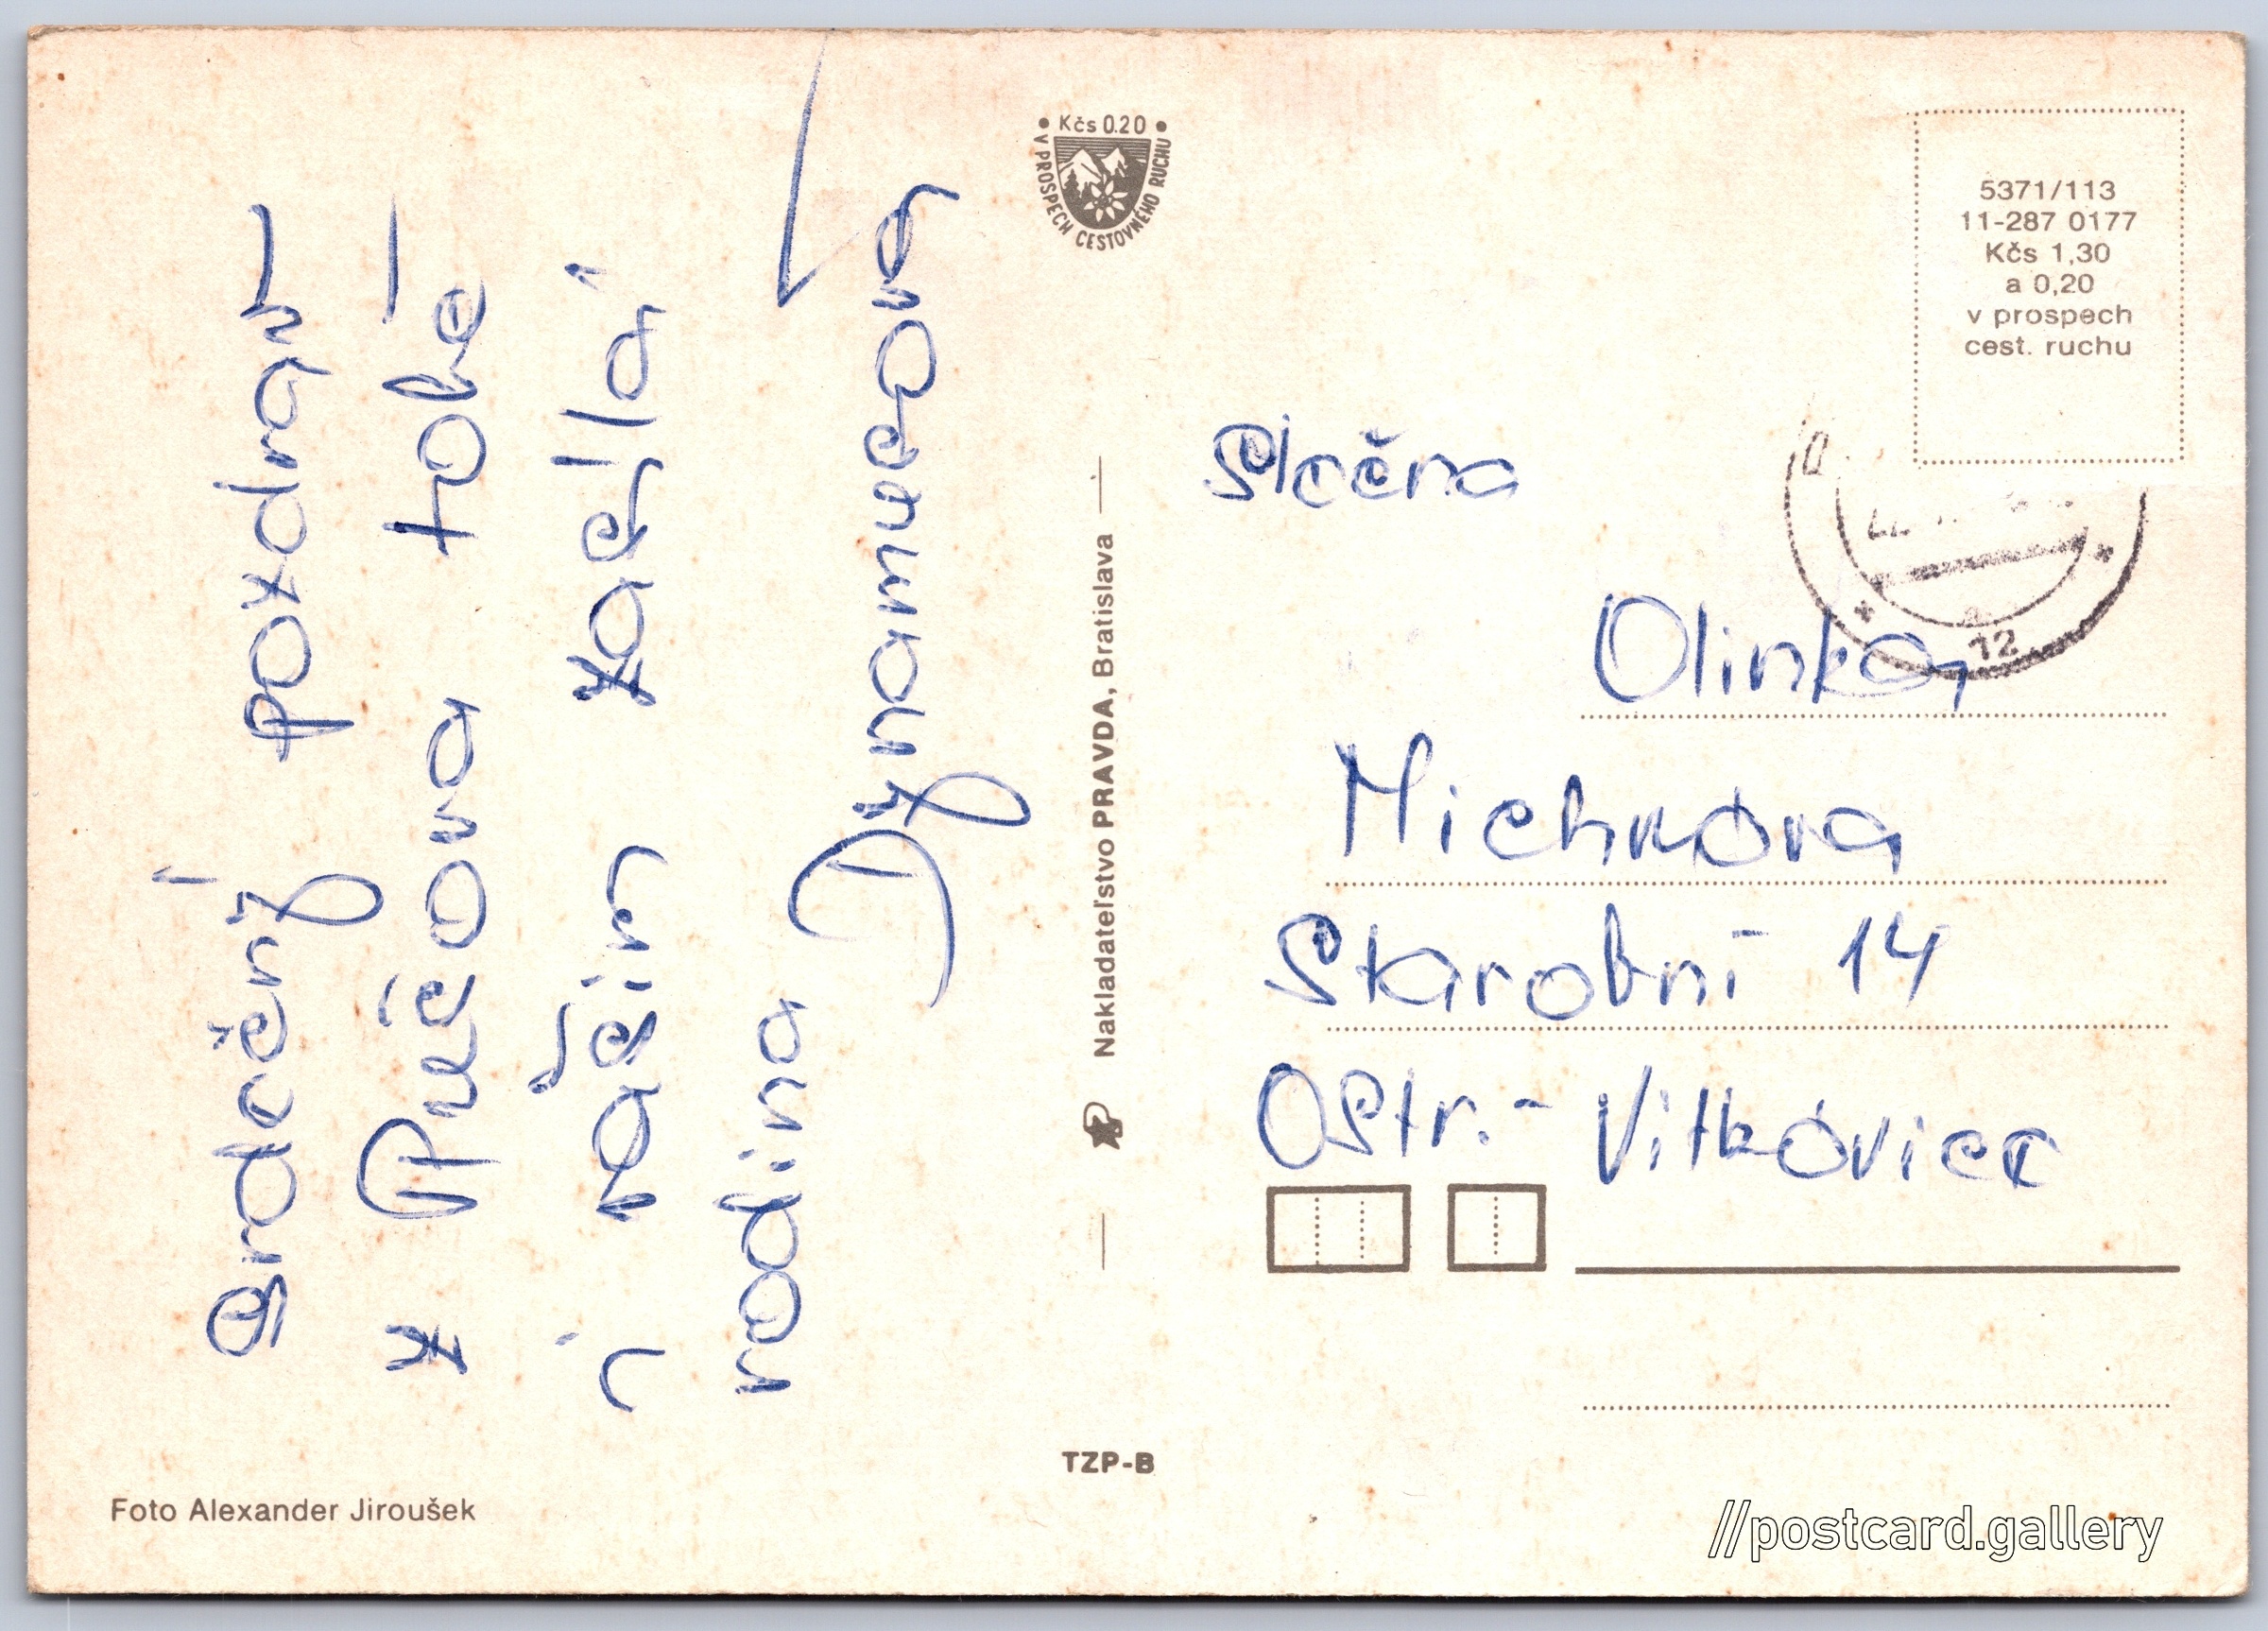 Srdečný pozdrav
z Púčova tobě
i vašim zasílá
rodina
Kčs 0.20
V PROSPECH CESTOVNÉHO RUCHU
5371/113
11-287 0177
Kčs 1,30
a 0,20
v prospech
cest. ruchu
12
Slečna
Olinka
Michnova
Starobní 14
Ostr.- Vítkovice
Nakladateľstvo PRAVDA, Bratislava
TZP-B
Foto Alexander Jiroušek
//postcard.gallery